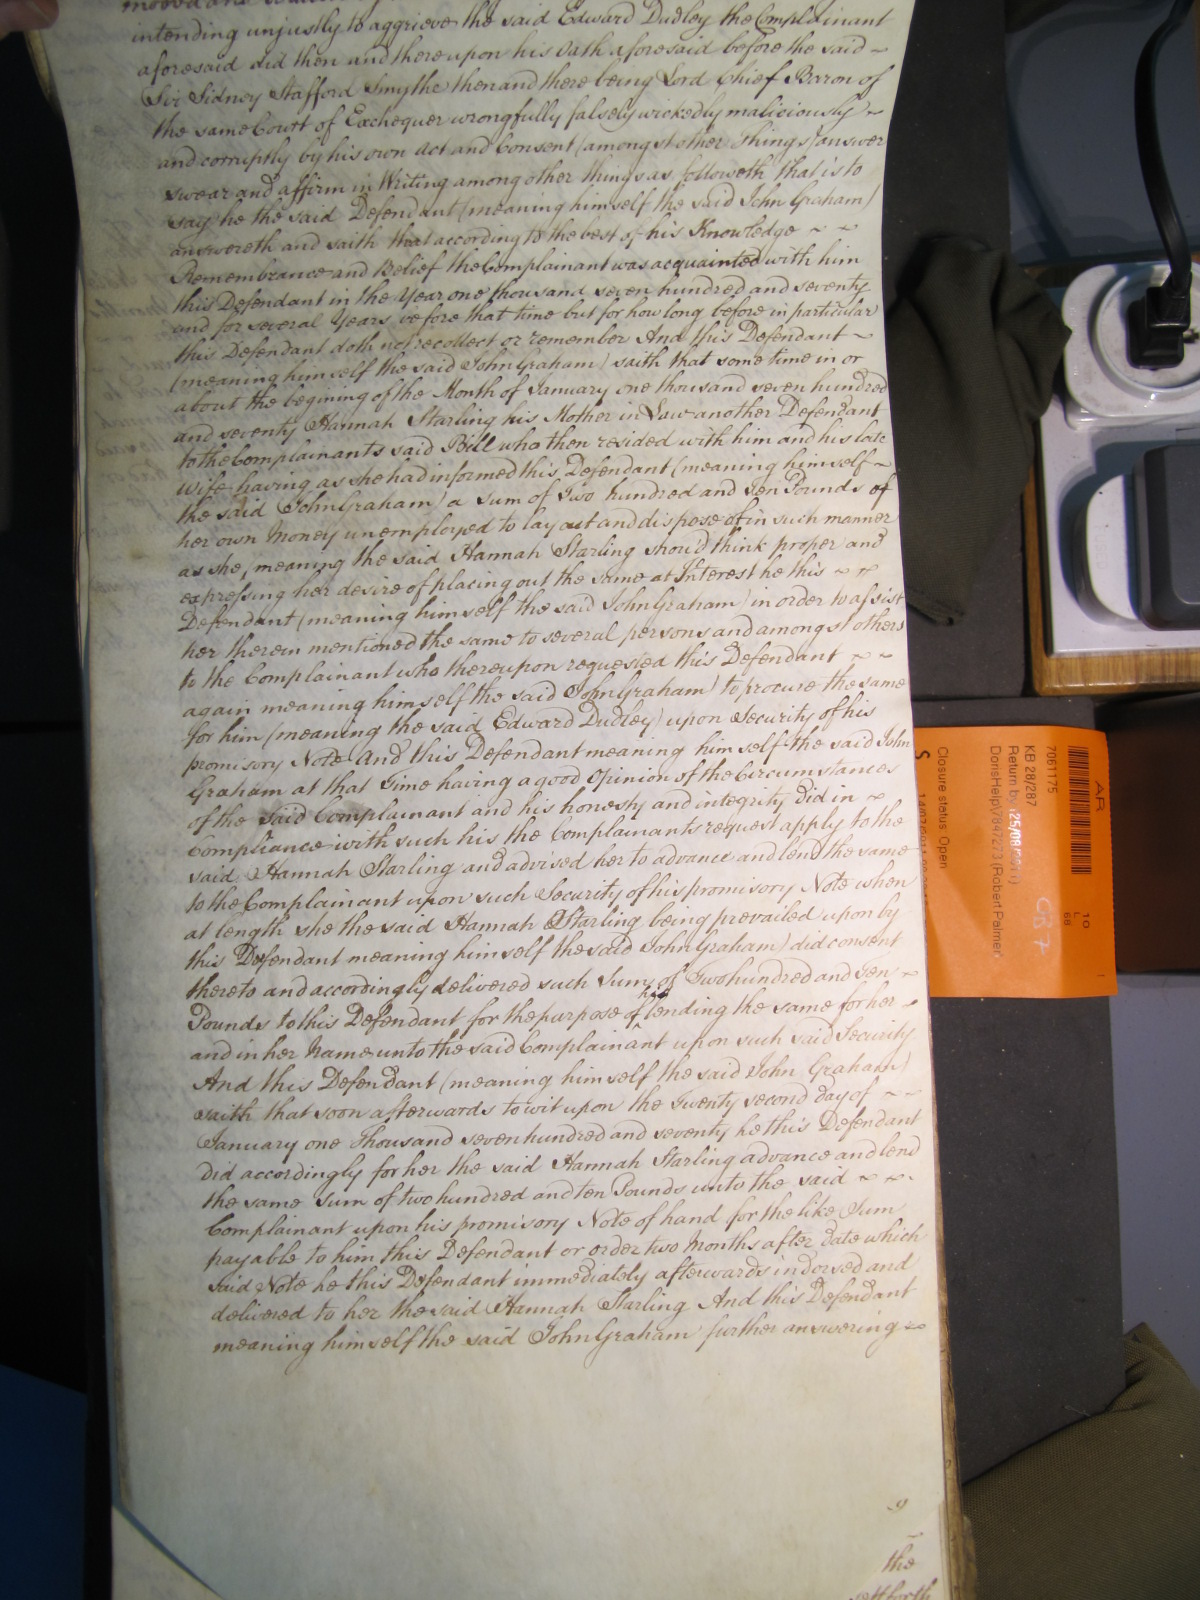 moved and
intending unjustly to aggrieve the said Edward Dudley the Complainant
aforesaid did then and thereupon his Oath aforesaid before the said ~
Sir Sidney Stafford Smythe then and there being Lord Chief Baron of
the same Court of Exchequer wrongfully falsely wickedly maliciously ~
and corruptly by his own Act and Consent (amongst other Things) answer
swear and affirm in Writing among other things as followeth that is to
say he the said Defendant (meaning himself the said John Graham)
answereth and saith that according to the best of his Knowledge ~ ~
Remembrance and Belief the Complainant was acquainted with him
this Defendant in the Year one thousand seven hundred and seventy
and for several Years before that time but for how long before in particular
this Defendant doth not recollect or remember And this Defendant ~
(meaning himself the said John Graham) saith that some time in or
about the begining of the Month of January one thousand seven hundred
and seventy Hannah Starling his Mother in Law another Defendant
to the Complainants said Bill who then resided with him and his late
Wife having as she had informed this Defendant (meaning himself ~
the said John Graham) a Sum of Two hundred and Ten Pounds of
her own Money unemployed to lay out and dispose of in such manner
as she, meaning the said Hannah Starling shou'd think proper and
expressing her desire of placing out the same at Interest he this ~ ~
Defendant (meaning himself the said John Graham) in order to assist
her therein mentioned the same to several persons and amongst others
to the Complainant who thereupon requested this Defendant ~ ~
again meaning himself the said John Graham) to procure the same
for him (meaning the said Edward Dudley) upon Security of his
promisory Note And this Defendant meaning himself the said John
Graham at that Time having a good Opinion of the Circumstances
of the said Complainant and his honesty and integrity did in ~
Compliance with such his the Complainants request apply to the
said Hannah Starling and advised her to advance and lend the same
to the Complainant upon such Security of his promisory Note when
at length she the said Hannah Starling being prevailed upon by
this Defendant meaning himself the said John Graham) did consent
thereto and accordingly delivered such Sum of Two hundred and Ten ~
Pounds to this Defendant for the purpose of his lending the same for her ~
and in her Name unto the said Complainant upon such said Security
And this Defendant (meaning himself the said John Graham)
saith that soon afterwards to wit upon the Twenty second day of ~ ~
January one Thousand seven hundred and seventy he this Defendant
did accordingly for her the said Hannah Starling advance and lend
the same Sum of two hundred and ten Pounds unto the said ~ ~
Complainant upon his promisory Note of hand for the like Sum
payable to him this Defendant or order two Months after date which
said Note he this Defendant immediately afterwards indorsed and
delivered to her the said Hannah Starling And this Defendant
meaning himself the said John Graham further answering ~
the
sett forth
AR
7061175
KB 28/287
Return by (25/08/2011)
DorisHelp7847273 (Robert Palmer
Closure status: Open
S
10
L
68